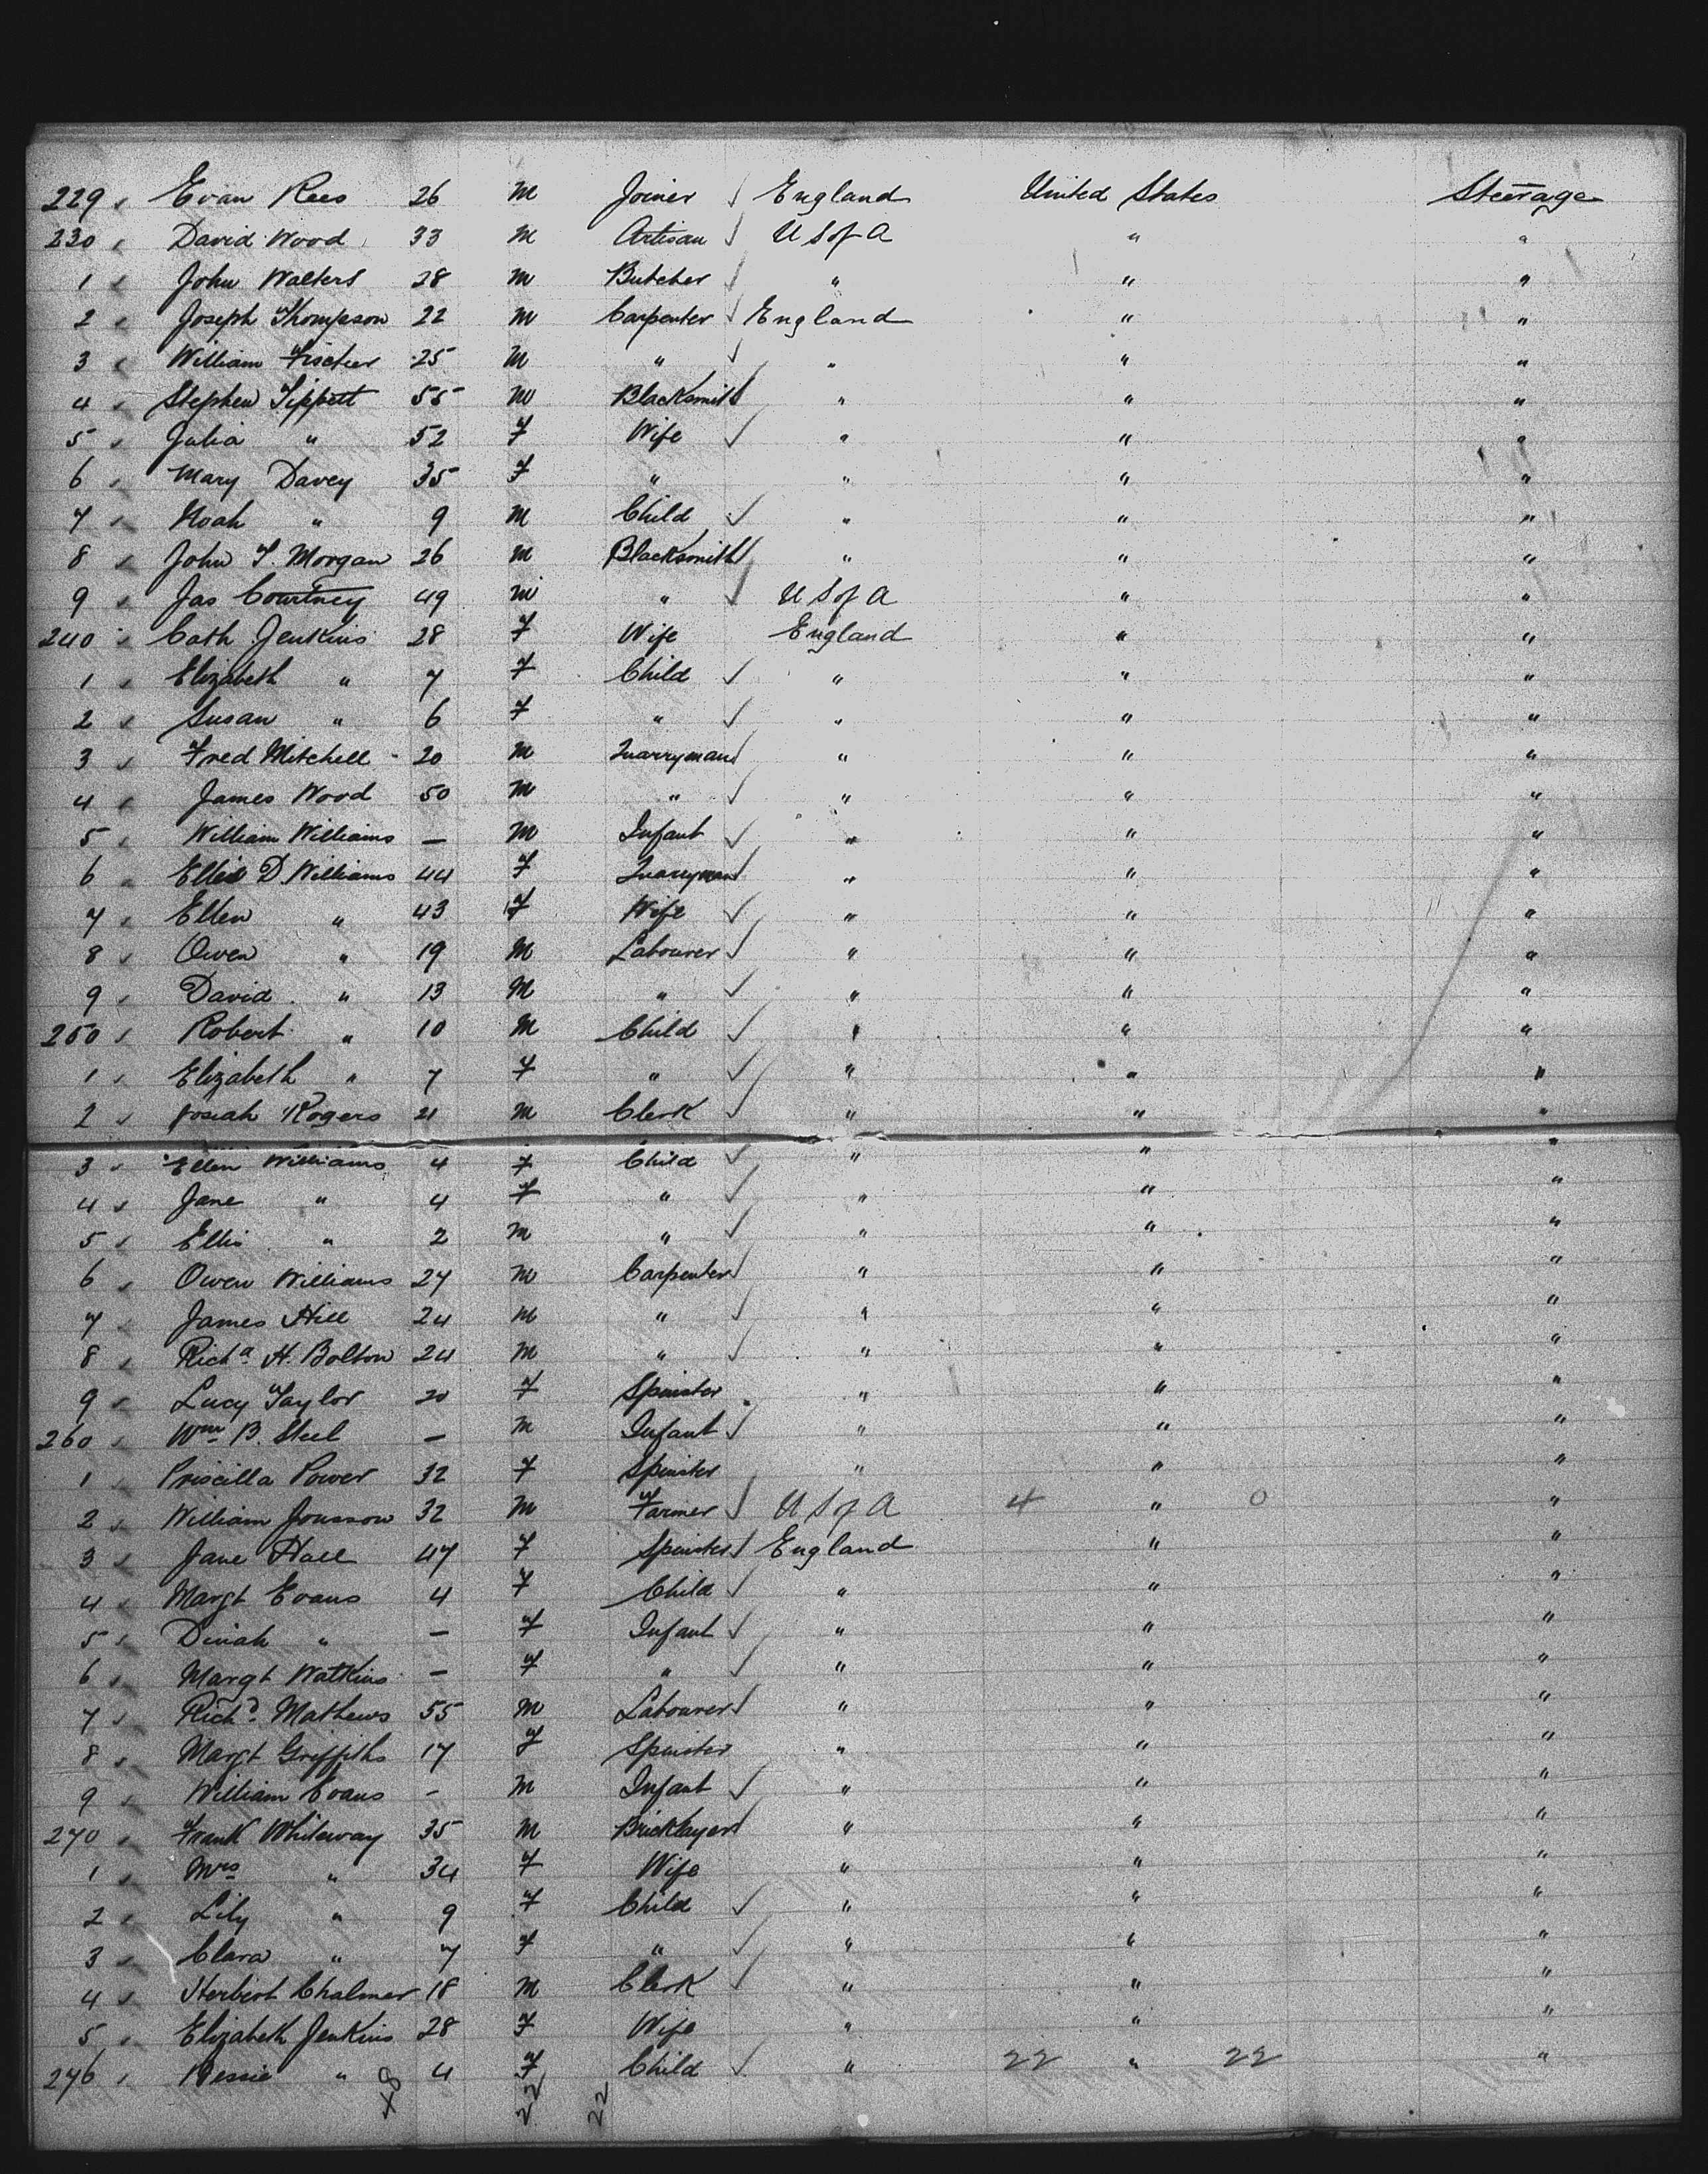 229 Evan Rees 26 M Joiner England United States Steerage
230 David Wood 33 M Artisan U S of A " "
1 John Walters 28 M Butcher " " "
2 Joseph Thompson 22 M Carpenter England " "
3 William Fischer 25 M " " " "
4 Stephen Tippett 55 M Blacksmith " " "
5 Julia " 52 F Wife " " "
6 Mary Davey 35 F " " " "
7 Noah " 9 M Child " " "
8 John T. Morgan 26 M Blacksmith " " "
9 Jas Courtney 49 M " U S of A " "
240 Cath Jenkins 28 F Wife England " "
1 Elizabeth " 7 F Child " " "
2 Susan " 6 F " " " "
3 Fred Mitchell 20 M Quarryman " " "
4 James Wood 50 M " " " "
5 William Williams — M Infant " " "
6 Ellis D. Williams 44 F Quarryman " " "
7 Ellen " 43 F Wife " " "
8 Owen " 19 M Labourer " " "
9 David " 13 M " " " "
250 Robert " 10 M Child " " "
1 Elizabeth " 7 F " " " "
2 Josiah Rogers 21 M Clerk " " "
3 Ellen Williams 4 F Child " " "
4 Jane " 4 F " " " "
5 Ellis " 2 M " " " "
6 Owen Williams 27 M Carpenter " " "
7 James Hill 24 M " " " "
8 Richd H. Bolton 24 M " " " "
9 Lucy Taylor 20 F Spinster " " "
260 Wm B. Steel — M Infant " " "
1 Priscilla Power 32 F Spinster " " "
2 William Jonsson 32 M Farmer U S of A 4 " 0 "
3 Jane Hall 47 F Spinster England " "
4 Margt Evans 4 F Child " " "
5 Dinah " — F Infant " " "
6 Margt Watkins — F " " " "
7 Richd Mathews 55 M Labourer " " "
8 Margt Griffiths 17 F Spinster " " "
9 William Evans - M Infant " " "
270 Frank Whiteway 35 M Bricklayer " " "
1 Mrs " 34 F Wife " " "
2 Lily " 9 F Child " " "
3 Clara " 7 F " " " "
4 Herbert Chalmer 18 M Clerk " " "
5 Elizabeth Jenkins 28 F Wife " " "
276 Bessie " 4 F Child " 22 " 22 "
22 22